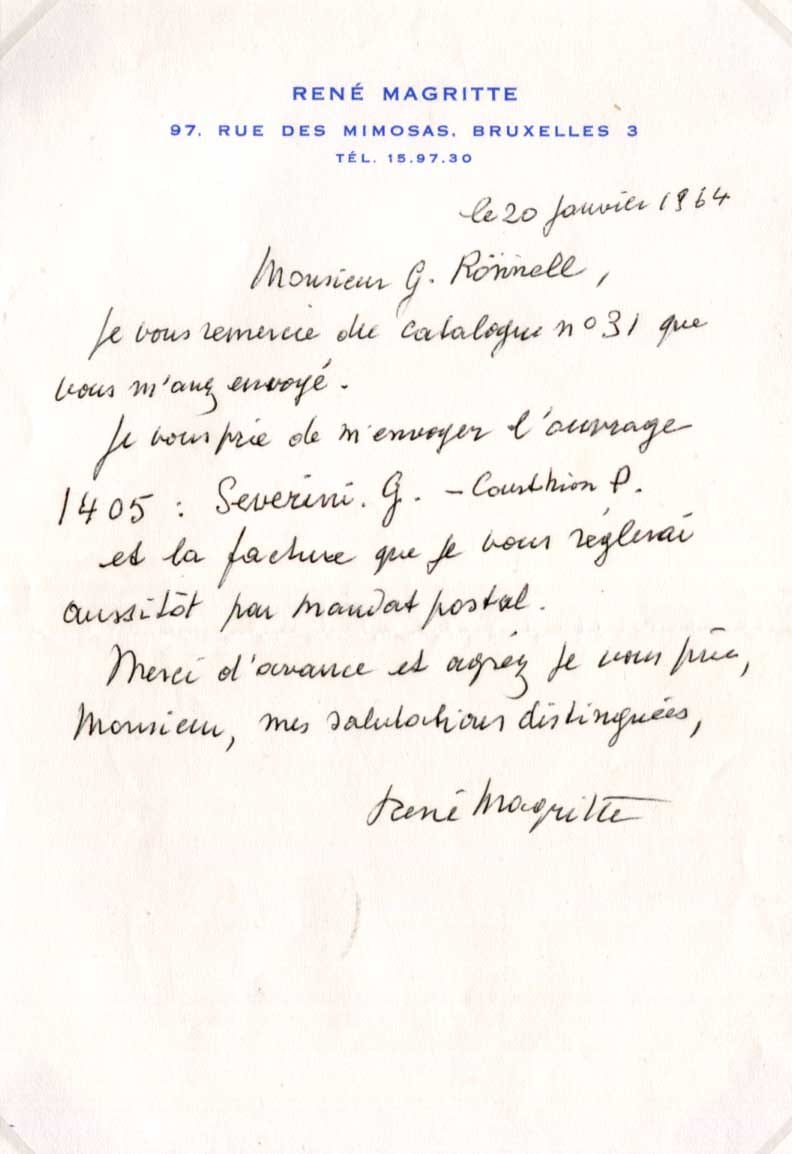 RENÉ MAGRITTE
97, RUE DES MIMOSAS, BRUXELLES 3
TÉL. 15.97.30
le 20 Janvier 1964
Monsieur G. Rönnell,
Je vous remercie du catalogue n° 31 que
vous m'avez envoyé.
Je vous prie de m'envoyer l'ouvrage
1405 : Severini. G. – Courthion P.
et la facture que je vous réglerai
aussitôt par mandat postal.
Merci d'avance et agréez je vous prie,
Monsieur, mes salutations distinguées,
René Magritte